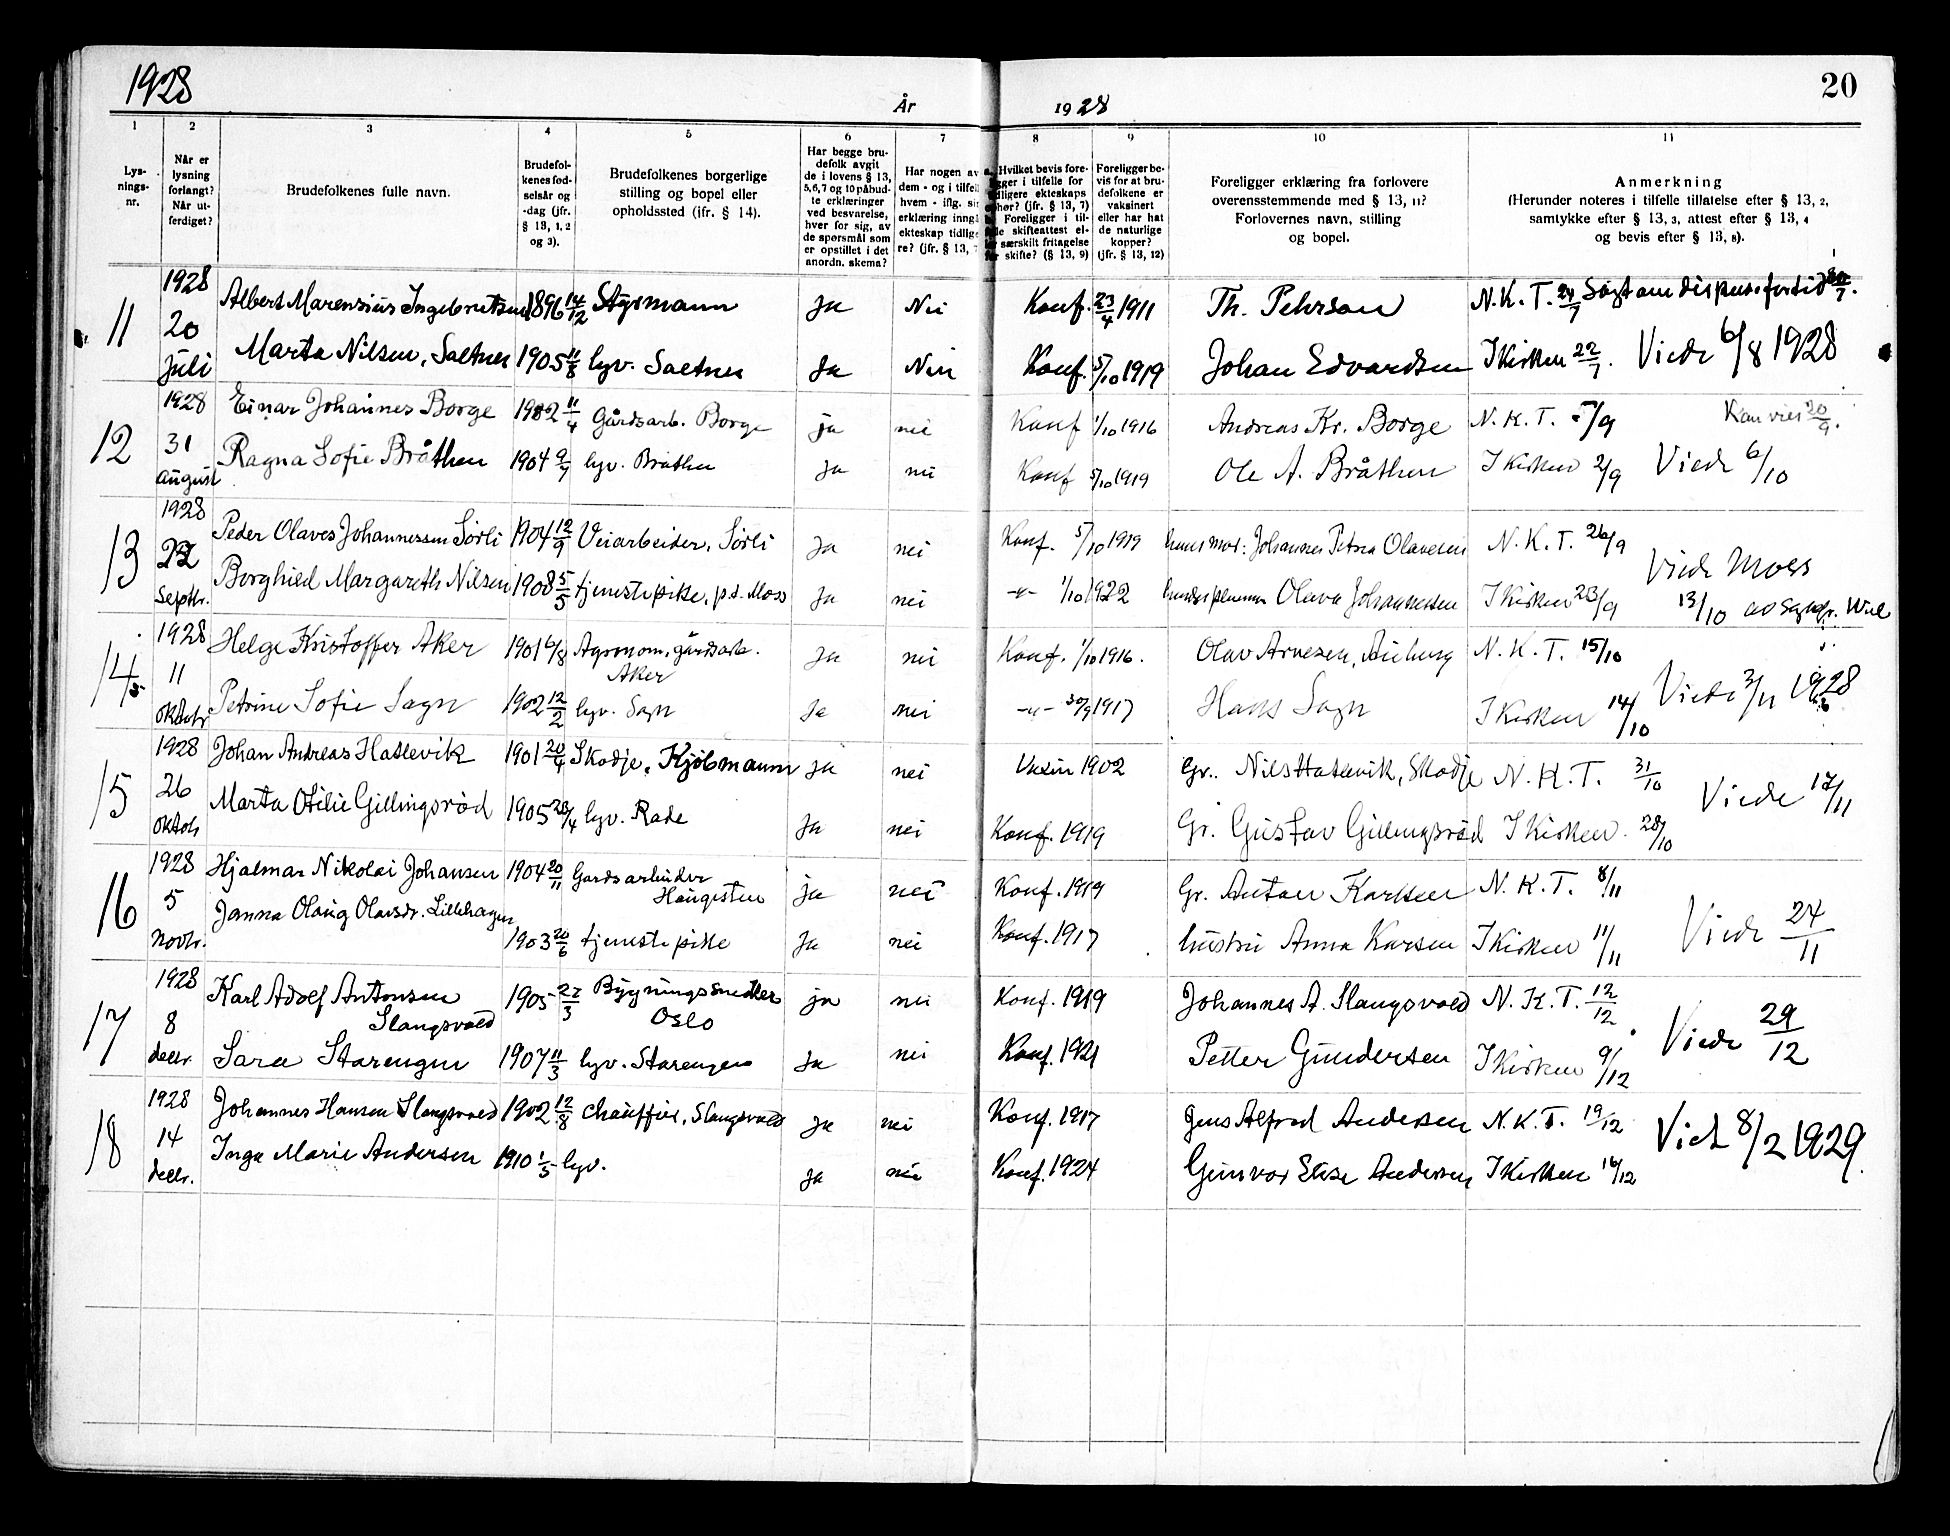 1928
År
1928
20
1 2 3 4 5 6 7 8 9 10 11
Lys-
nings-
nr.
Når er
lysning
forlangt?
Når ut-
ferdiget?
Brudefolkenes fulle navn.
Brudefol-
kenes fød-
selsår og
-dag (jfr.
§ 13, 1, 2
og 3).
Brudefolkenes borgerlige
stilling og bopel eller
opholdssted (jfr. § 14).
Har begge bru-
defolk avgit
de i lovens § 13,
5,6,7 og 10 påbud-
te erklæringer
ved besvarelse,
hver for sig, av
de spørsmål som
er opstillet i det
anordn. skema?
Har nogen av
dem - og i tilfell
hvem - iflg. sin
erklæring inngå
ekteskap tidlige
re? (jfr. § 13, 7
Hvilket bevis fore-
gger i tilfelle for
dligere ekteskaps
phør? (jfr. § 13, 7)
Foreligger i til-
le skifteattest el-
ler særskilt fritagelse
for skifte? (§ 13, 9)
Foreligger be-
vis for at bru-
defolkene er
vaksinert
eller har hat
de naturlige
kopper?
(jfr. § 13, 12)
Foreligger erklæring fra forlovere
overensstemmende med § 13, 11?
Forlovernes navn, stilling
og bopel.
Anmerkning
(Herunder noteres i tilfelle tillatelse efter § 13, 2,
samtykke efter § 13, 3, attest efter § 13, 4
og bevis efter § 13, 8).
11 1928 20 juli
Albert Marensius Ingebretsen 1896 14/12 Styrmann Ja Nei Konf. 23/4 1911 Th. Pehrson N.K.T. 24/7 Søgt om dispens. fortid 20/7.
Marta Nilsen, Saltnes 1905 11/8 hjv. Saltnes Ja Nei Konf. 5/10 1919 Johan Edvardsen I Kirken 22/7. Viede 6/8 1928
12 1928 31 august
Einar Johannes Borge 1902 11/4 Gårdsarb. Borge ja nei Konf 1/10 1916 Andreas Kr. Borge N.K.T. 5/9 Kan vies 20/9.
Ragna Sofie Bråthen 1904 9/7 hjv. Bråthen ja nei Konf 5/10 1919 Ole A. Bråthen I Kirken 2/9 Viede 6/10
13 1928 22 Septbr.
Peder Olaves Johannessen Sørli 1904 12/9 Veiarbeider, Sørli Ja nei Konf. 5/10 1919 hans mor: Johannes Petrea Olavesen N.K.T. 26/9 Viede Moss
Borghild Margareth Nilsen 1908 5/5 tjenestepike, p.t. Moss Ja nei -"- 1/10 1922 Olava Johannessen I Kirken 23/9 13/10 av sogepr. Wiel
14 1928 11 oktobr
Helge Kristoffer Aker 1901 6/8 Agronom, gårdsarb. Aker Ja nei Konf. 1/10 1916. Olav Arnesen, N.K.T. 15/10
Petrine Sofie Sagn 1902 12/2 hjv. Sogn Ja nei -"- 30/9 1917 Hans Sogn I Kirken 14/10 Viede 3/11 1928
15 1928 26 oktob
Johan Andreas Hatlevik 1901 20/4 Skodje, Kjøbmann ja nei Vaxin 1902 Gr. Nils Hatlevik, Skodje N.K.T. 31/10
Marta Otilie Gillingsrød 1905 28/4 hjv. Råde Ja nei Konf. 1919 Gr. Gustav Gillingsrød I Kirken. 28/10 Viede 17/11
16 1928 5 Novbr.
Hjalmar Nikolai Johansen 1904 20/11 Gardsarbeider Haugesten Ja nei Konf. 1919 Gr. Anton Karlsen N.K.T. 8/11
Janna Olaug Olavsdr. Lillehagen 1903 20/6 tjenestepike Ja nei Konf. 1917 hustru Anna Karsen I Kirken 11/11 Viede 24/11
17 1928 8 decbr.
Karl Adolf Antonsen Slangsvold 1905 22/3 Bygningssnedker Oslo ja nei Konf. 1919 Johannes A. Slangsvold N.K.T. 12/12
Sara Starengen 1907 11/3 hjv. Starengen Ja nei Konf. 1921 Petter Gundersen I Kirken 9/12 Viede 29/12
18 1928 14 decbr.
Johannes Hansen Slangsvold 1902 12/8 chauffør, Slangsvold Ja nei Konf. 1917 Jens Alfred Andersen N.K.T. 19/12
Inga Marie Andersen 1910 1/5 hjv. Ja nei Konf. 1924 Gunvor Elise Andersen I Kirken 16/12 Viet 8/2 1929.